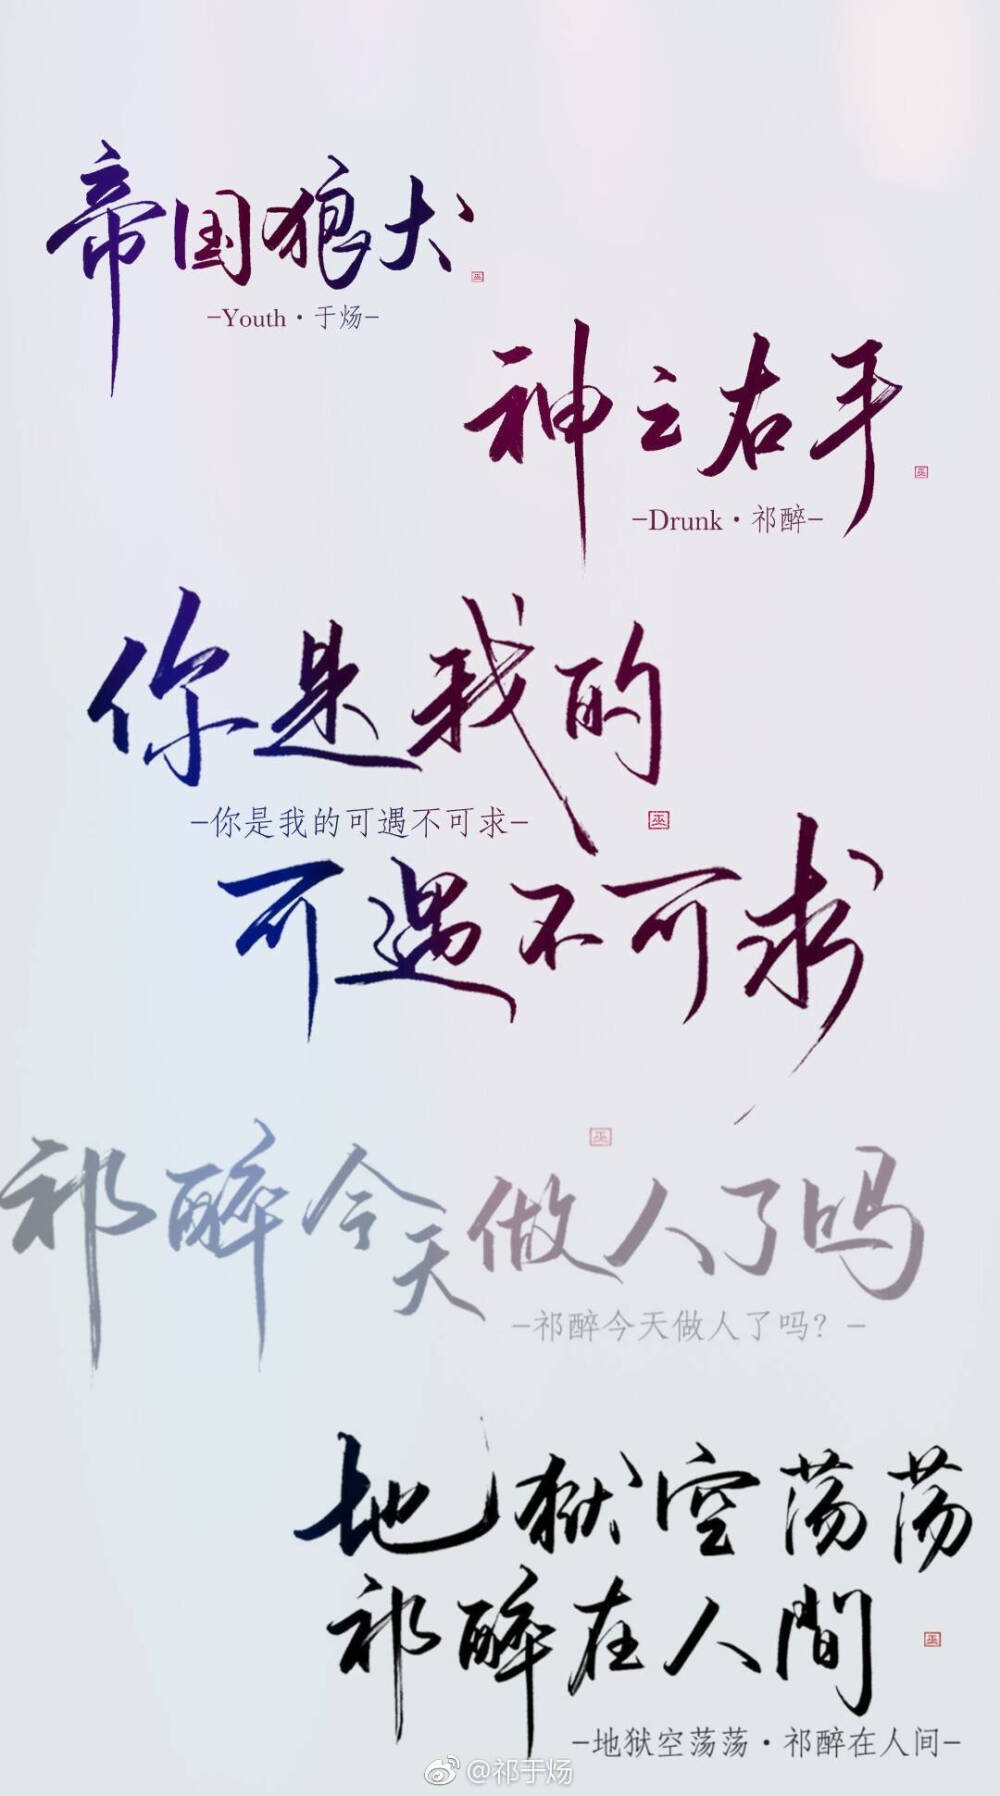 帝国狼犬
-Youth·于炀-
神之右手
-Drunk·祁醉-
你是我的
-你是我的可遇不可求-
可遇不可求
祁醉今天做人了吗
-祁醉今天做人了吗？-
地狱空荡荡
祁醉在人間
-地狱空荡荡·祁醉在人间-
@祁于炀